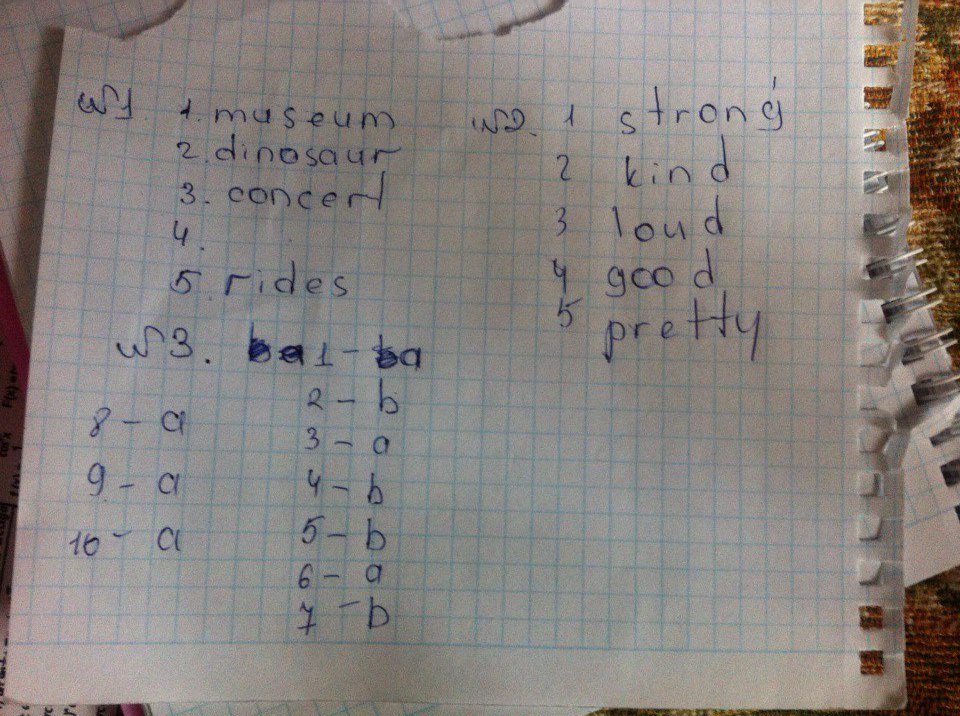 №1. 1. museum
2. dinosaur
3. concert
4.
5. rides
№2. 1 strong
2 kind
3 loud
4 good
5 pretty
№3. 1 - a
2 - b
3 - a
4 - b
5 - b
6 - a
7 - b
8 - a
9 - a
10 - a